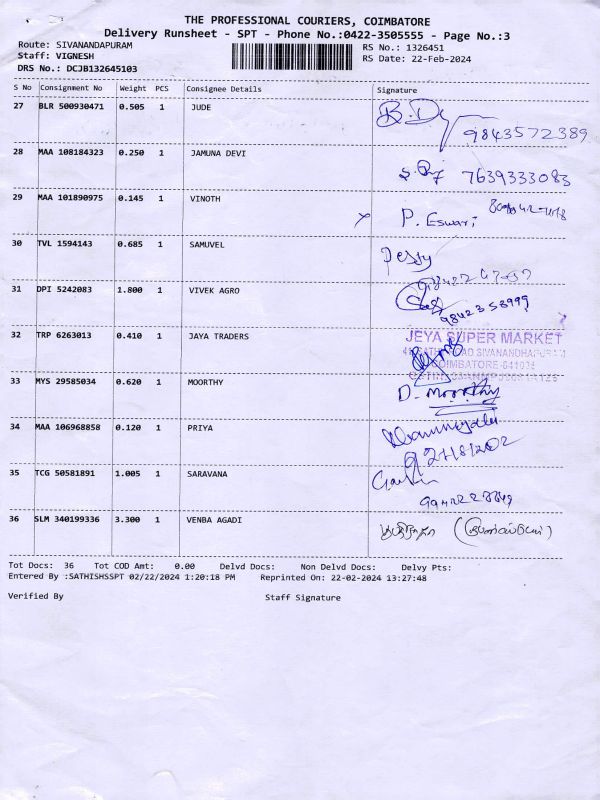 THE PROFESSIONAL COURIERS, COIMBATORE
Delivery Runsheet - SPT - Phone No.:0422-3505555 - Page No.:3
Route: SIVANANDAPURAM RS No.: 1326451
Staff: VIGNESH RS Date: 22-Feb-2024
DRS No.: DCJB132645103
S No Consignment No Weight PCS Consignee Details Signature
27 BLR 500930471 0.505 1 JUDE
9843572389
28 MAA 108184323 0.250 1 JAMUNA DEVI
7639333083
29 MAA 101890975 0.145 1 VINOTH
P. Eswari
30 TVL 1594143 0.685 1 SAMUVEL
31 DPI 5242083 1.800 1 VIVEK AGRO
32 TRP 6263013 0.410 1 JAYA TRADERS
JEYA SUPER MARKET
SIVANANDHAPURAM
COIMBATORE-641035
33 MYS 29585034 0.620 1 MOORTHY
D. Moorthy
34 MAA 106968858 0.120 1 PRIYA
35 TCG 50581891 1.005 1 SARAVANA
36 SLM 340199336 3.300 1 VENBA AGADI
Tot Docs: 36 Tot COD Amt: 0.00 Delvd Docs: Non Delvd Docs: Delvy Pts:
Entered By :SATHISHSSPT 02/22/2024 1:20:18 PM Reprinted On: 22-02-2024 13:27:48
Verified By Staff Signature